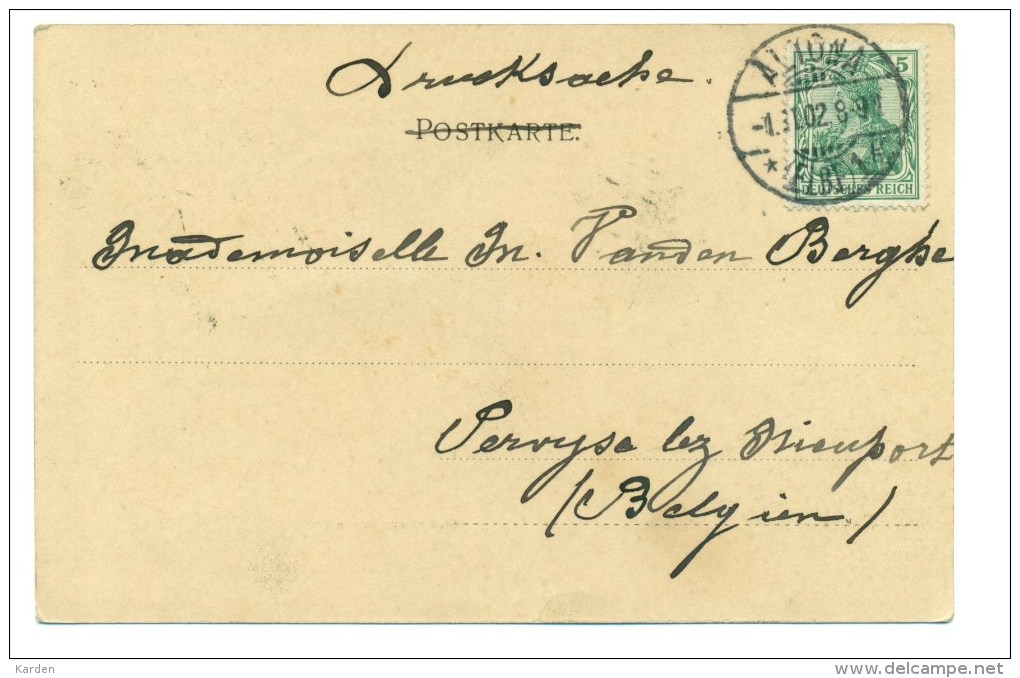 Drucksache.
POSTKARTE.
ALTONA
5 5
1.3.02.8-9
(ELBE) 1
DEUTSCHES REICH
Mademoiselle M. Vanden Berghe
Pervyse lez Nieuport
(Belgien)
Karden
http://www.delcampe.net